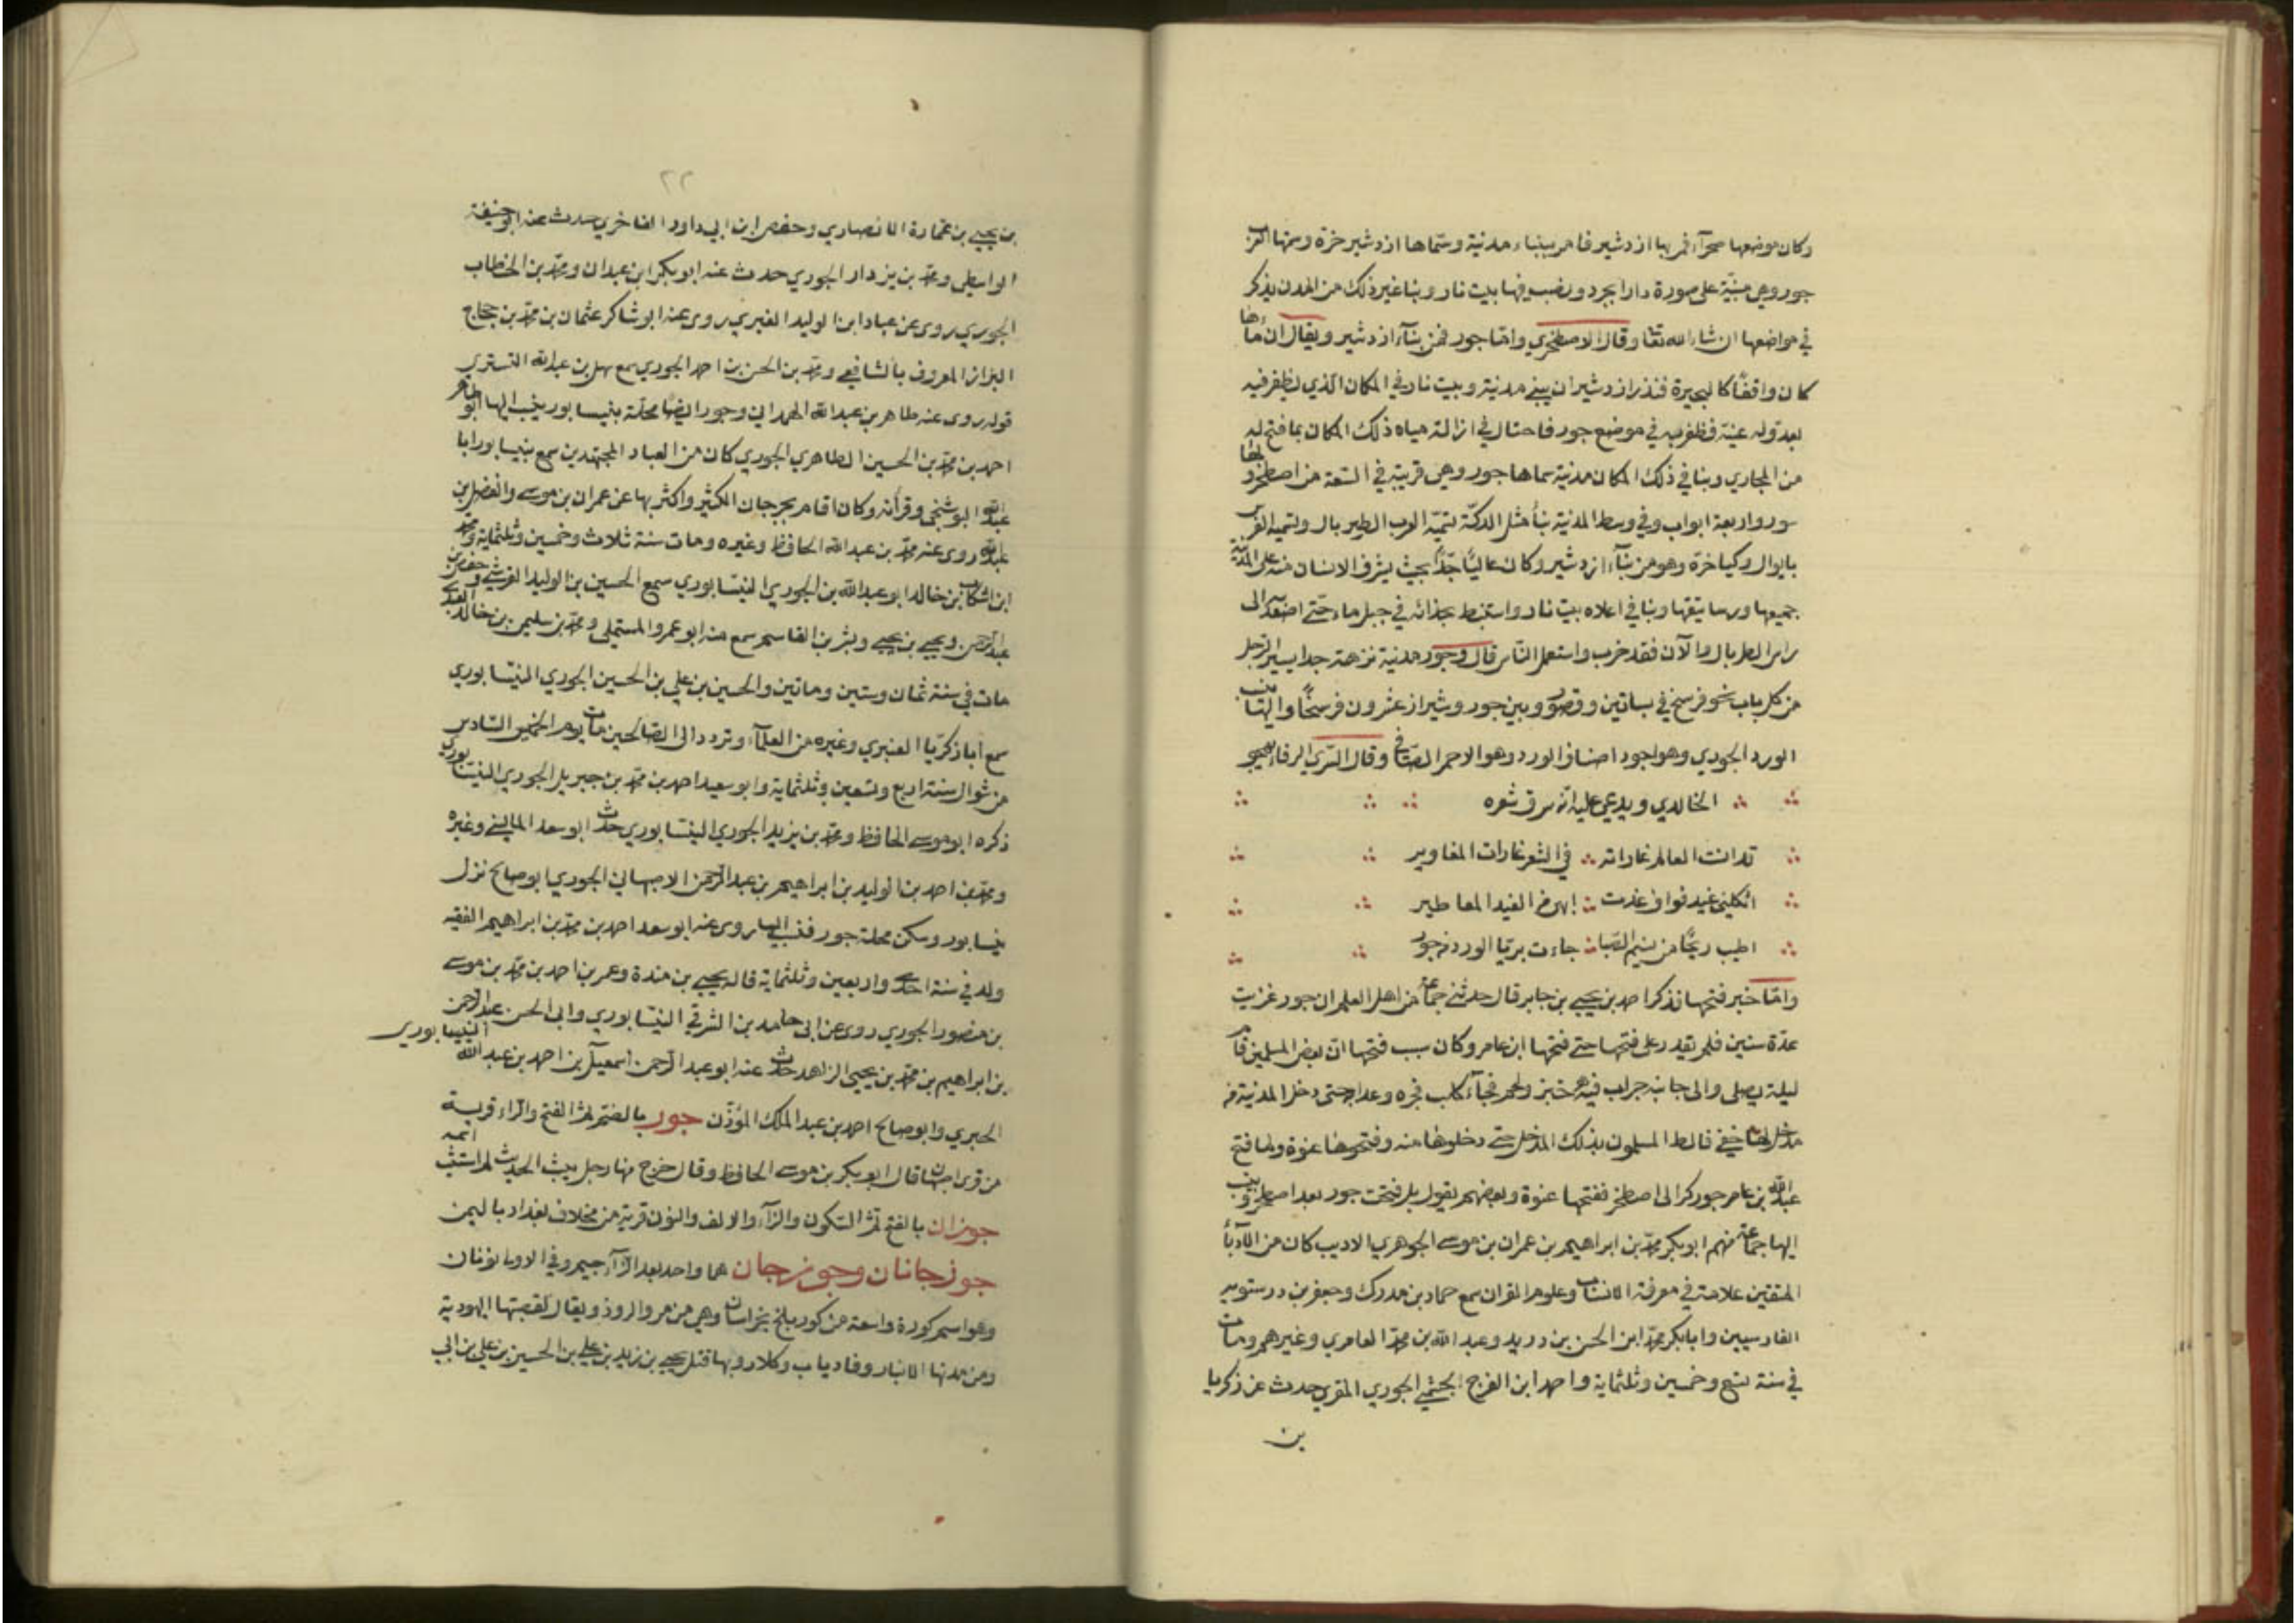 وكان موضعها صحرآء فمر بها ازدشير فامر ببناء مدنية وسماها ازدشير خرة وسمتها العرب
جور وهي مبنية على صورة دارابجرد ونصب فيها بيت نار وبنا غير ذلك من المدن يذكر
في مواضعها ان شاء الله تعا وقال الاصطخري واما جور فمن بناء ازدشير ويقال ان ماءها
كان واقفا كالبحيرة فنذر ازدشير ان يبني مدنية وبيت نار في المكان الذي يظفر فيه
بعدو له عينه فظفر به في موضع جور فاحتال في ازالة مياه ذلك المكان بما فتح له
من المجاري وبنا في ذلك المكان مدنية سماها جور وهي قريبة في السعة من اصطخر ولها
سور واربعة ابواب وفي وسط المدنية بنأ مثل الدكة تسميه العرب الطيربال وتسميه الفرس
بايوان وكياخرة وهو من بنآء ازدشير وكان عاليا جدا بحيث يشرف الانسان منه على المدنية
جميعها ورساتيقها وبنا في اعلاه بيت نار واستنبط بحذائه في جبل ماء حتى اصعد الى
راس الطربال وما الآن فقد خرب واستعمل الناس قال وجور مدنية نزهة جدا يسير الرجل
من كل باب نحو فرسخ في بساتين وقصور وبين جور وشيراز عشرون فرسخا واليها ينسب
الورد الجوري وهو اجود اصناف الورد وهو الاحمر الصافي وقال السري الرفاء يهجو
الخالدي ويدعي عليه انه سرق شعره
قد انت العالم غاراته في الشعر غارات المغاوير
اثكلني غيد قواف غدت ابهى من الغيد المعاطير
اطيب ريحا من نسيم الصبا جاءت بريا الورد من جور
واما خبر فتحها فذكر احمد بن يحيى بن جابر قال حدثني جماعة من اهل العلم ان جور غزيت
عدة سنين فلم يقدر على فتحها حتى فتحها ابن عامر وكان سبب فتحها ان بعض المسلمين قام
ليلة يصلي والى جانبه جراب فيه خبز ولحم فجآء كلب فجره وعدا به حتى دخل المدنية من
مدخل لها خفي فالط المسلمون بذلك المدخل حتى دخلوها منه وفتحوها عنوة ولما فتح
عبد الله بن عامر جور كر الى اصطخر ففتحها عنوة وبعضهم يقول بل فتحت جور بعد اصطخر وينسب
اليها جماعة منهم ابو بكر محمد بن ابراهيم بن عمران بن موسى الجوهري الاديب كان من الادبآء
المتقنين علامة في معرفة الانساب وعلوم القران سمع حماد بن مدرك وجعفر بن درستويه
الفارسيين وابا بكر محمد ابن الحسن بن دريد وعبد الله بن محمد العامري وغيرهم ومات
في سنة تسع وخمسين وثلثماية واحمد ابن الفرج الجشمي الجوري المقري حدث عن زكريا
بن
٢٢
بن يحيى بن عمارة الانصاري وحفص ابن ابي داود الفاخري حدث عنه ابو حنيفة
الواسطي ومحمد بن يزداد الجوري حدث عنه ابو بكر ابن عبدان ومحمد بن الخطاب
الجوري روى عن عباد ابن الوليد الغبري روى عنه ابو شاكر عثمان بن محمد بن حجاج
البزاز المعروف بالشافعي ومحمد بن الحسن بن احمد الجوري سمع سهل بن عبد الله التستري
قوله روى عنه طاهر بن عبد الله الهمداني وجور ايضا محلة بنيسابور ينسب اليها ابو طاهر
احمد بن محمد بن الحسين الطاهري الجوري كان من العباد المجتهدين سمع بنيسابور ابا
عبد الله البوشنجي وقرانه وكان اقام بجرجان الكثير واكثر بها عن عمران بن موسى والفضل بن
عبد الله روى عنه محمد بن عبد الله الحافظ وغيره ومات سنة ثلاث وخمسين وثلثماية ومحمد
ابن اشكاب بن خالد ابو عبد الله بن الجوري النيسابوري سمع الحسين بن الوليد القرشي وحفص بن
عبد الرحمن ويحيى بن يحيى وبشر بن القاسم سمع منه ابو عمرو المستملي ومحمد بن سليمن بن خالد العبدي
مات في سنة ثمان وستين وماتين والحسين بن علي بن الحسين الجوري النيسابوري
سمع ابا زكريا العنبري وغيره من العلمآء وتردد الى الصالحين مات يوم الخميس السادس
من شوال سنة اربع وتسعين وثلثماية وابو سعيد احمد بن محمد بن جبريل الجوري النيسابوري
ذكره ابو موسى الحافظ ومحمد بن يزيد الجوري النيسابوري حدث ابو سعد الماليني وغيره
ومحمد بن احمد بن الوليد بن ابراهيم بن عبد الرحمن الاصبهاني الجوري ابو صالح نزل
نيسابور وسكن محلة جور فنسب اليها روى عنه ابو سعد احمد بن محمد بن ابراهيم الفقيه
ولد في سنة احدى واربعين وثلثماية قاله يحيى بن مندة وعمر بن احمد بن محمد بن موسى
بن منصور الجوري روى عن ابى حامد بن الشرقي النيسابوري وابى الحسن عبد الرحمن
بن ابراهيم بن محمد بن يحيى الزاهد حدث عنه ابو عبد الرحمن اسمعيل بن احمد بن عبد الله النيسابوري
الحيري وابو صالح احمد بن عبد الملك المؤذن جور بالضم ثم الفتح والراء قرية
من قرى اصبهان قال ابو بكر بن موسى الحافظ وقال خرج منها رجل يكتب الحديث لم اثبت اسمه
جوزان بالفتح ثم السكون والزآء والالف والنون قرية من مخلاف بغداد باليمن
جوزجانان وجوزجان هما واحد بعد الزآء جيم وفي الاولى نونان
وهو اسم كورة واسعة من كور بلخ بخراسان وهي من مرو الروذ ويقال لقصبتها اليهودية
ومن مدنها الانبار وفارياب وكلار وبها قتل يحيى بن زيد بن علي بن الحسين بن علي بن ابي